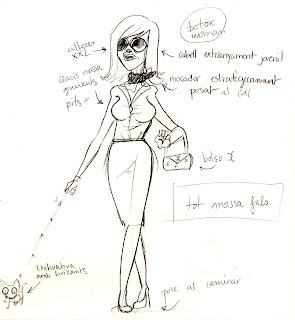 botox
woman
ulleres
XXL
cabell estranyament juvenil
llavis massa
gruixuts
mocador estratègicament
posat al coll
pits "
bolso X
tot massa fals
chihuahua
amb brillants
pose al caminar